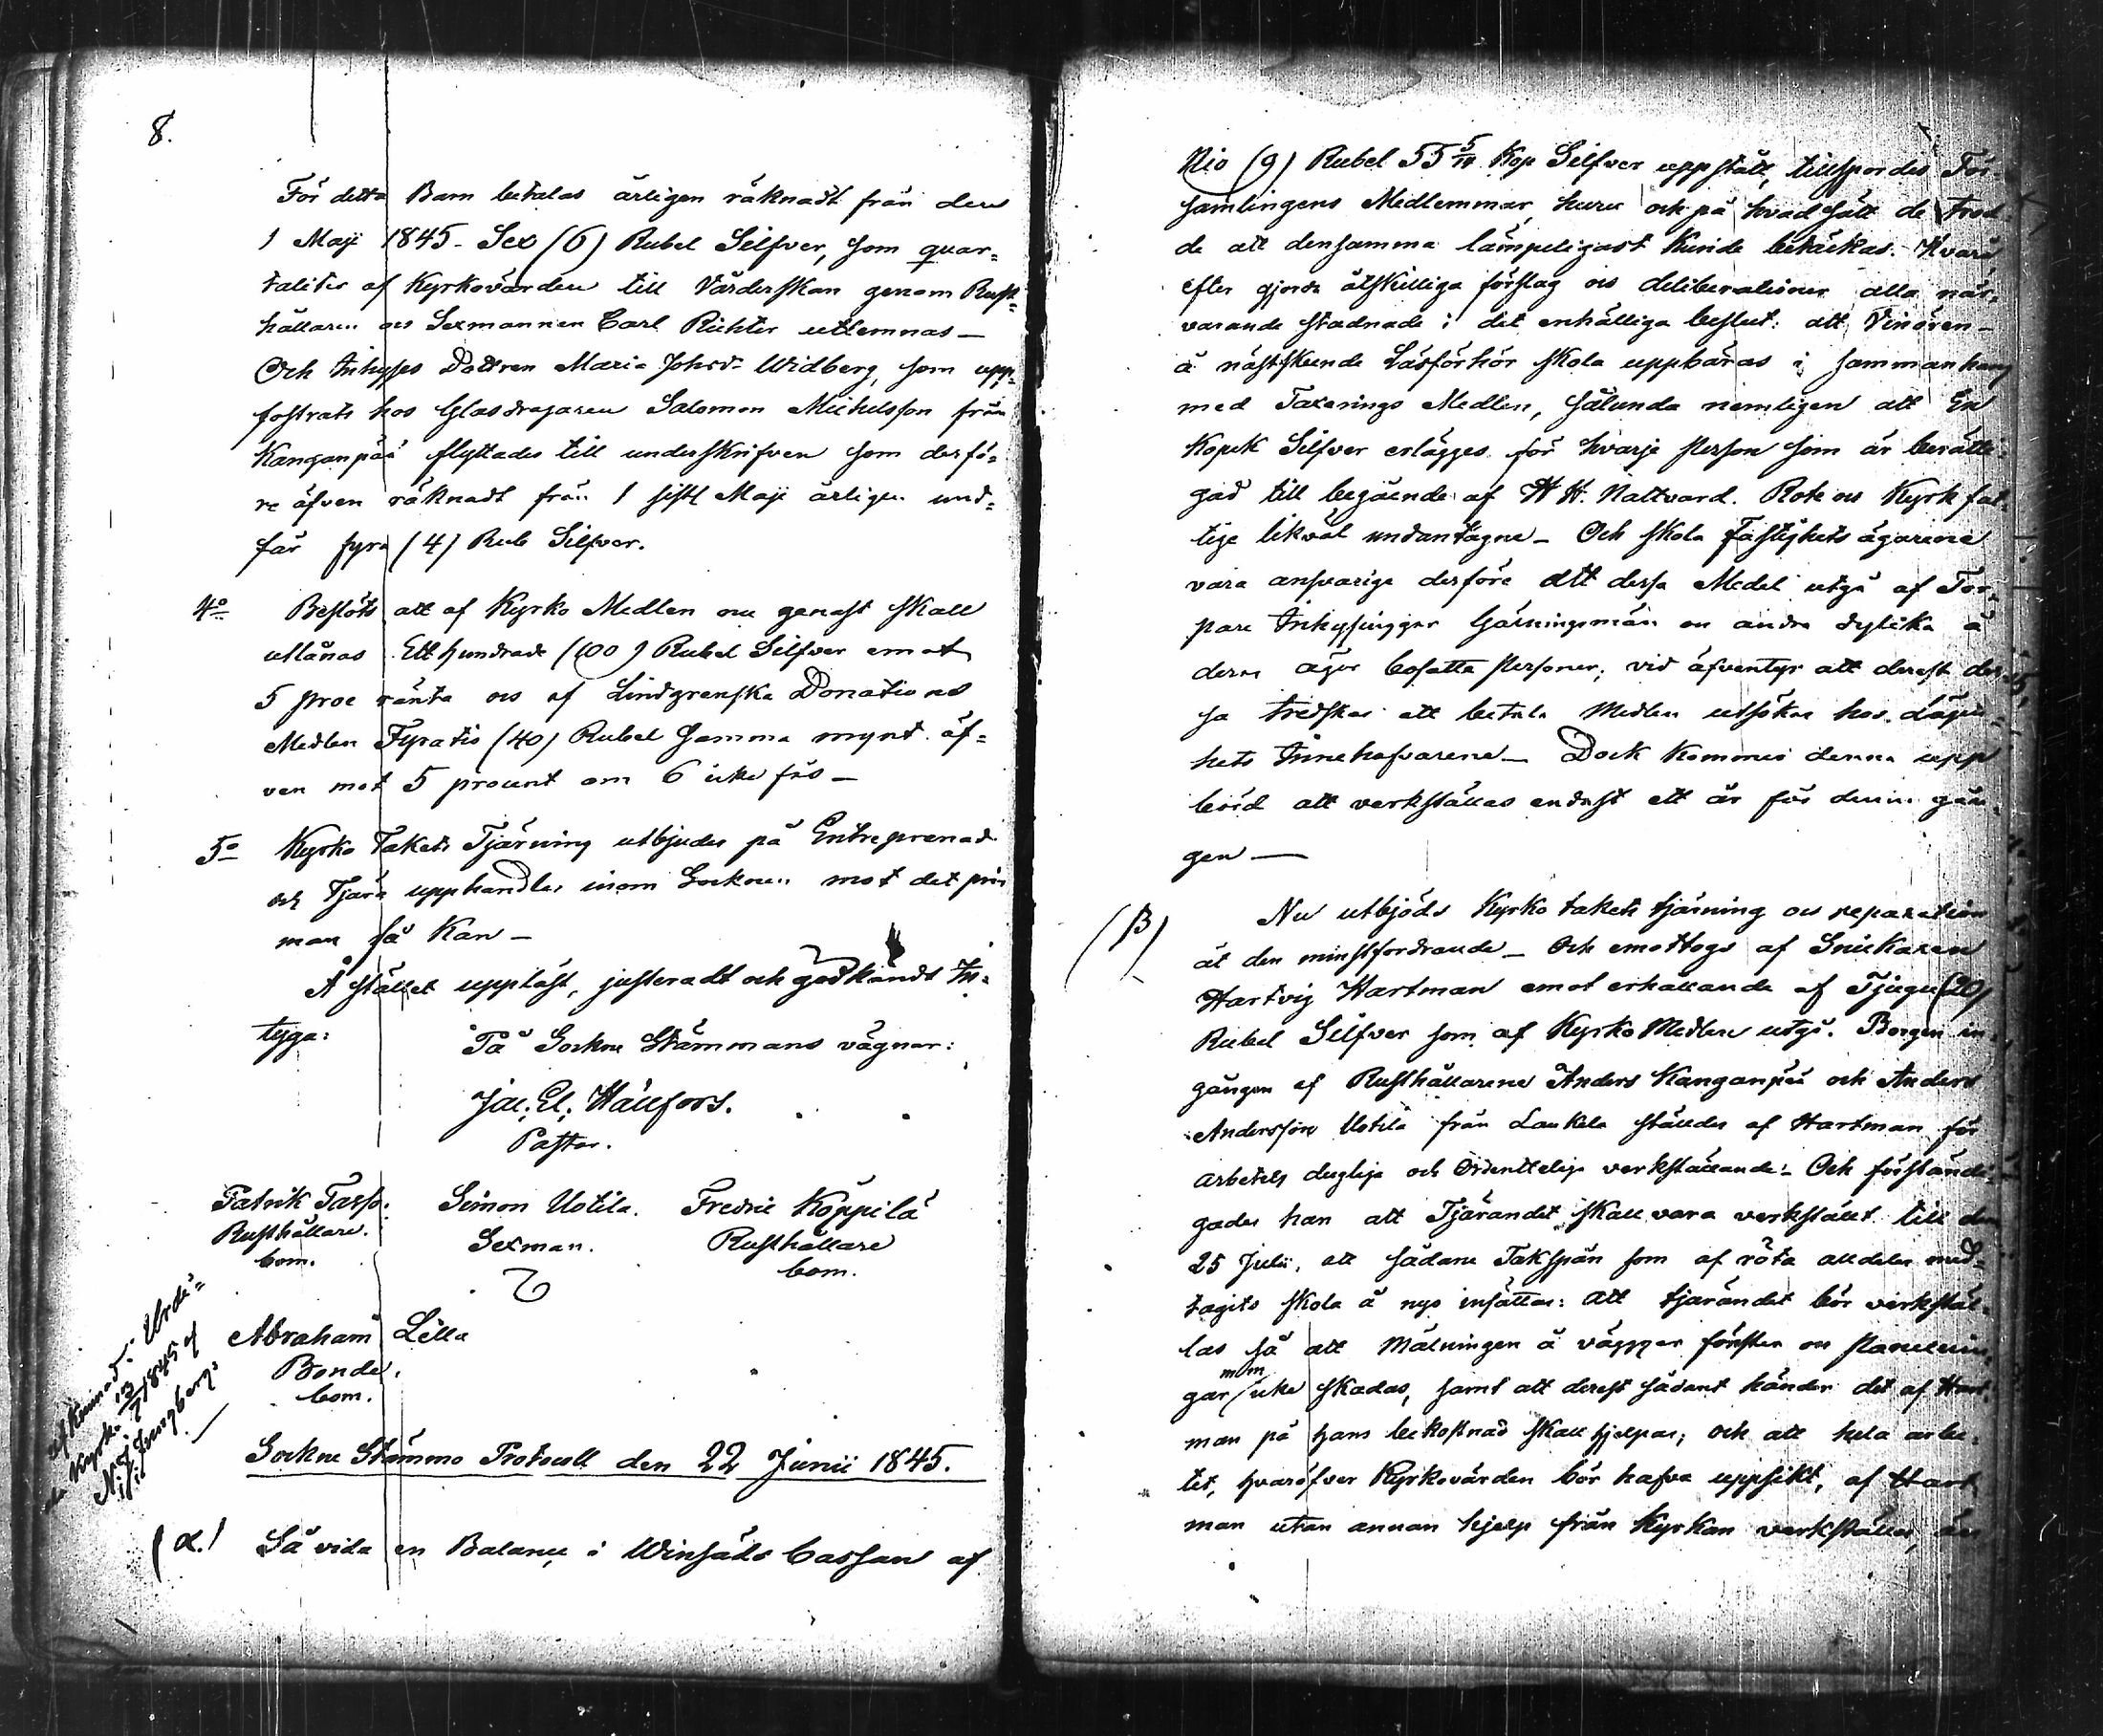 8.
För detta Barn betalas årligen räknadt från den
1 Maji 1845 - Sex (6) Rubel Silfver, som quar=
taliter af Kyrkovärden till Vårderskan genom Rust=
hållaren och Sexmannen Carl Richter utlemnas —
Och Inhyses Dottren Maria Johsd. Widberg, som upp=
fostrats hos Glasdragaren Salomon Michelsson från
Kanganpää flyttades till underskrifven som derfö=
re äfven räknadt från 1 sistl Maji årligen und=
får fyra (4) Rub Silfver.
4o Beslöts att af Kyrko Medlen nu genast skall
utlånas Ett hundrade (100) Rubel Silfver emot
5 proc ränta och af Lindgrenska Donations
Medlen Fyratio (40) Rubel samma mynt äf=
ven mot 5 procent om 6 icke fås —
5o Kyrko Takets Tjärning utbjudes på Entreprenad
och Tjära upphandlas inom Socknen mot det pris
man få kan —
Å stället uppläst, justeradt och godkändt In=
tyga:
På Sockne Stämmans vägnar:
Jac. El. Hällfors.
Pastor.
Patrik Tarfs. Simon Uotila. Fredric Köppilä
Rusthållare. Sexman. Rusthållare
bom. bom.
Abraham Lilla
Bonde.
bom.
Kyrka 13/7 1845 af
N. Ljungberg
Sockne Stämmo Protocoll den 22 Junii 1845.
(α.) Så vida en Balance i Winsäds Cassan af
Nio (9) Rubel 55 5/12 Kop Silfver uppstått, tillspordes För-
samlingens Medlemmar, huru och på hvad sätt de trod-
de att densamma lämpeligast kunde betäckas. Hvarå,
efter gjorde åtskilliga förslag och deliberationer alla när-
varande stadnade i det enhälliga beslut: att Vinören-
å nästskunde Läsförhör skola uppbäras i sammanhang
med Taxerings Medlen, sålunda nemligen att En
Kopek Silfver erlägges för hvarje person som är berätti-
gad till begående af H H. Nattvard. Rote och Kyrk fat-
tige likväl undantagne — Och skola Fastighets ägarene
vara ansvarige derföre att dessa Medel utgå af Tor-
pare Inhysingar Gärningsmän och andra dylika å
deras ägor bosatta personer, vid äfventyr att derest des-
sa tredskas att betala Medlen utsökas hos Lägen-
hets Innehafvarene — Dock kommer denna upp
börd att verkställas endast ett år för denna gån-
gen —
(β) Nu utbjöds Kyrko takets tjärning och reparation
åt den minstfordrande — Och emottogs af Snickaren
Hartvig Hartman emot erhållande af Tjugu (20)
Rubel Silfver som af Kyrko Medlen utgå. Borgen in-
gången af Rusthållarene Anders Kanganpää och Anders
Andersson Uotila från Laukela ställdes af Hartman för
arbetets duglige och Ordenttelige verkställande. — Och förständi-
gades han att Tjärandet skall vara verkstäldt till den
25 Julii, att sådane Takspån som af röta alldeles med-
tagits skola å nyo insättas: att tjärandet bör verkstäl-
las så att Målningen å väggar fönster och panelnin-
gar mm icke skadas, samt att derest sådant händer det af Hart-
man på hans bekostnad skall hjelpas; och att hela arbe-
tet, hvaröfver Kyrkovärden bör hafva uppsikt, af Hart
man utan annan hjelp från Kyrkan verkställes, än